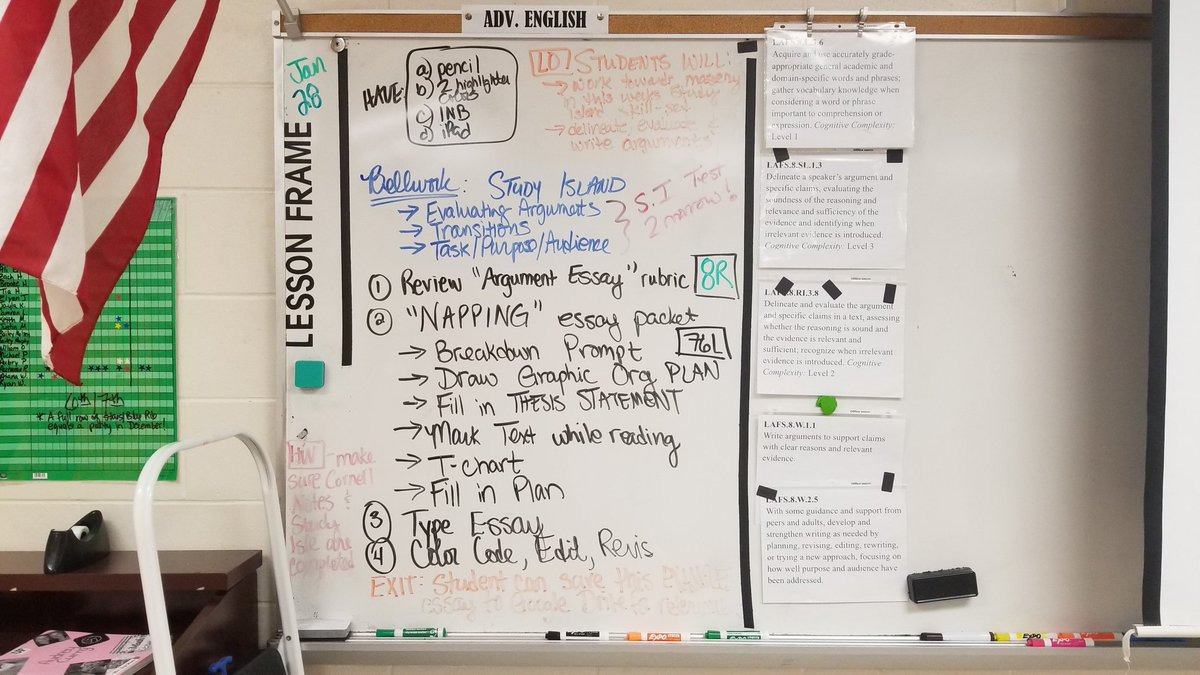 ADV. ENGLISH
Jan
28
LESSON FRAME
HAVE:
a) pencil
b) 2 highlighter
colors
c) INB
d) iPad
LO STUDENTS WILL:
→ Work towards mastery
in this weeks Study
Island skill-set
→ delineate, evaluate &
write arguments
Bellwork: STUDY ISLAND
→ Evaluating Arguments
→ Transitions
→ Task/Purpose/Audience
S.I Test
2morrow!
1 Review "Argument Essay" rubric 8R
2 "NAPPING" essay packet
76L
→ Breakdown Prompt
→ Draw Graphic Org PLAN
→ Fill in THESIS STATEMENT
→ Mark Text while reading
→ T-chart
→ Fill in Plan
3 Type Essay
4 Color Code, Edit, Revis
EXIT: Student can save this
essay to Google Drive to reference
HW - make
sure Cornell
Notes &
Study
Isle are
completed
6
Acquire and use accurately grade-
appropriate general academic and
domain-specific words and phrases;
gather vocabulary knowledge when
considering a word or phrase
important to comprehension or
expression. Cognitive Complexity:
Level 1
LAFS.8.SL.1.3
Delineate a speaker's argument and
specific claims, evaluating the
soundness of the reasoning and
relevance and sufficiency of the
evidence and identifying when
irrelevant evidence is introduced.
Cognitive Complexity: Level 3
.8.RI.3.8
Delineate and evaluate the argument
and specific claims in a text, assessing
whether the reasoning is sound and
the evidence is relevant and
sufficient; recognize when irrelevant
evidence is introduced. Cognitive
Complexity: Level 2
LAFS.8.W.1.1
Write arguments to support claims
with clear reasons and relevant
evidence.
LAFS.8.W.2.5
With some guidance and support from
peers and adults, develop and
strengthen writing as needed by
planning, revising, editing, rewriting,
or trying a new approach, focusing on
how well purpose and audience have
been addressed.
6th/7th
* A full row of Stars
equals a party in December!
EXPO
EXPO